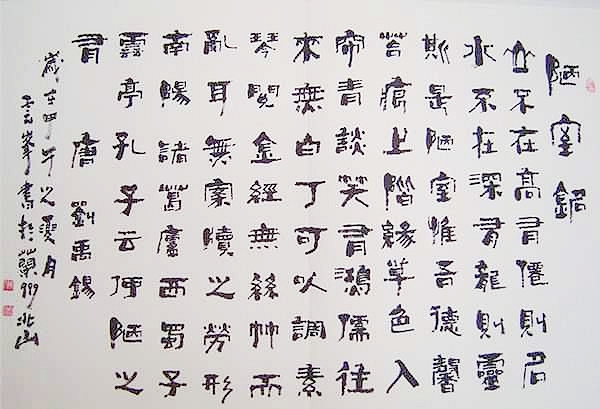 陋室銘
山不在高有僊則名
水不在深有龍則靈
斯是陋室惟吾德馨
苔痕上階綠草色入
帘青談笑有鴻儒往
來無白丁可以調素
琴閱金經無絲竹而
亂耳無案牘之勞形
南陽諸葛廬西蜀子
雲亭孔子云何陋之
有 唐 劉禹錫
歲在甲午之夏月
王云峯書於蘭州北山